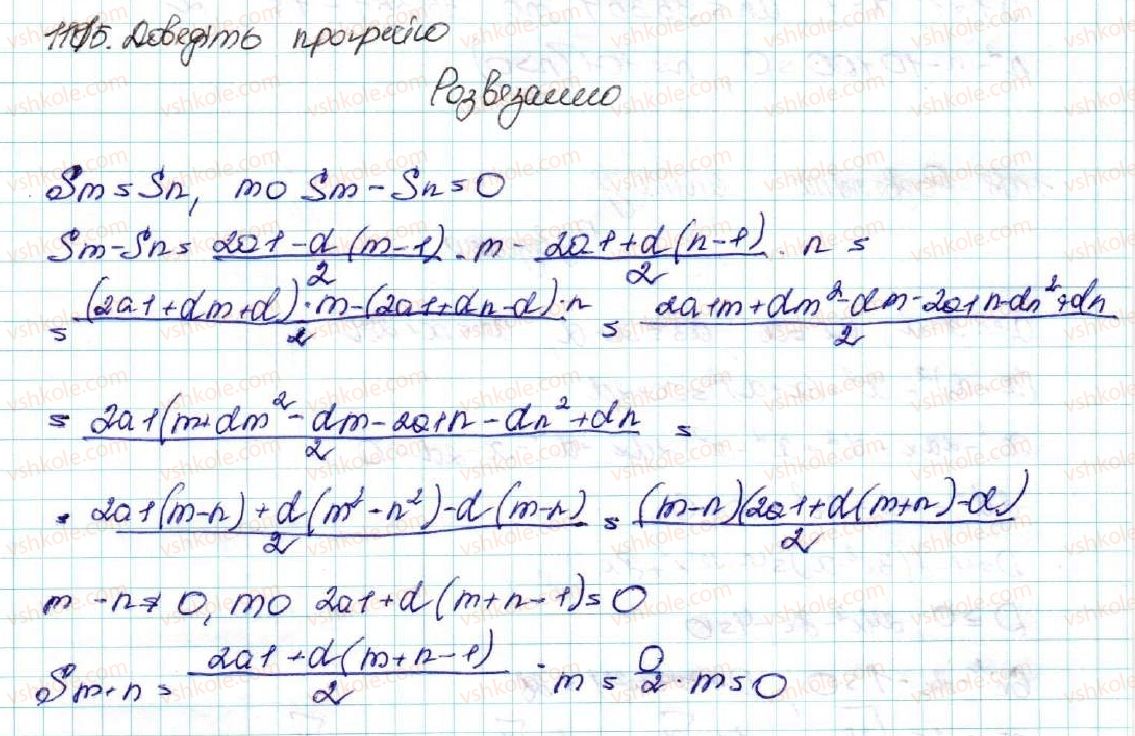 1105. Доведіть прогресію
Розвязанню
Sm = Sn, то Sm - Sn = 0
Sm - Sn = (2a1 - d(m-1))/2 · m - (2a1 + d(n-1))/2 · n =
= ((2a1 + dm + d) · m - (2a1 + dn - d) · n)/2 = (2a1m + dm² - dm - 2a1n - dn² + dn)/2
= (2a1(m + dm² - dm - 2a1n - dn² + dn)/2 =
· (2a1(m-n) + d(m² - n²) - d(m-n))/2 = ((m-n)(2a1 + d(m+n) - d))/2
m - n ≠ 0, то 2a1 + d(m+n-1) = 0
Sm+n = (2a1 + d(m+n-1))/2 · m = 0/2 · m = 0
vshkole.com